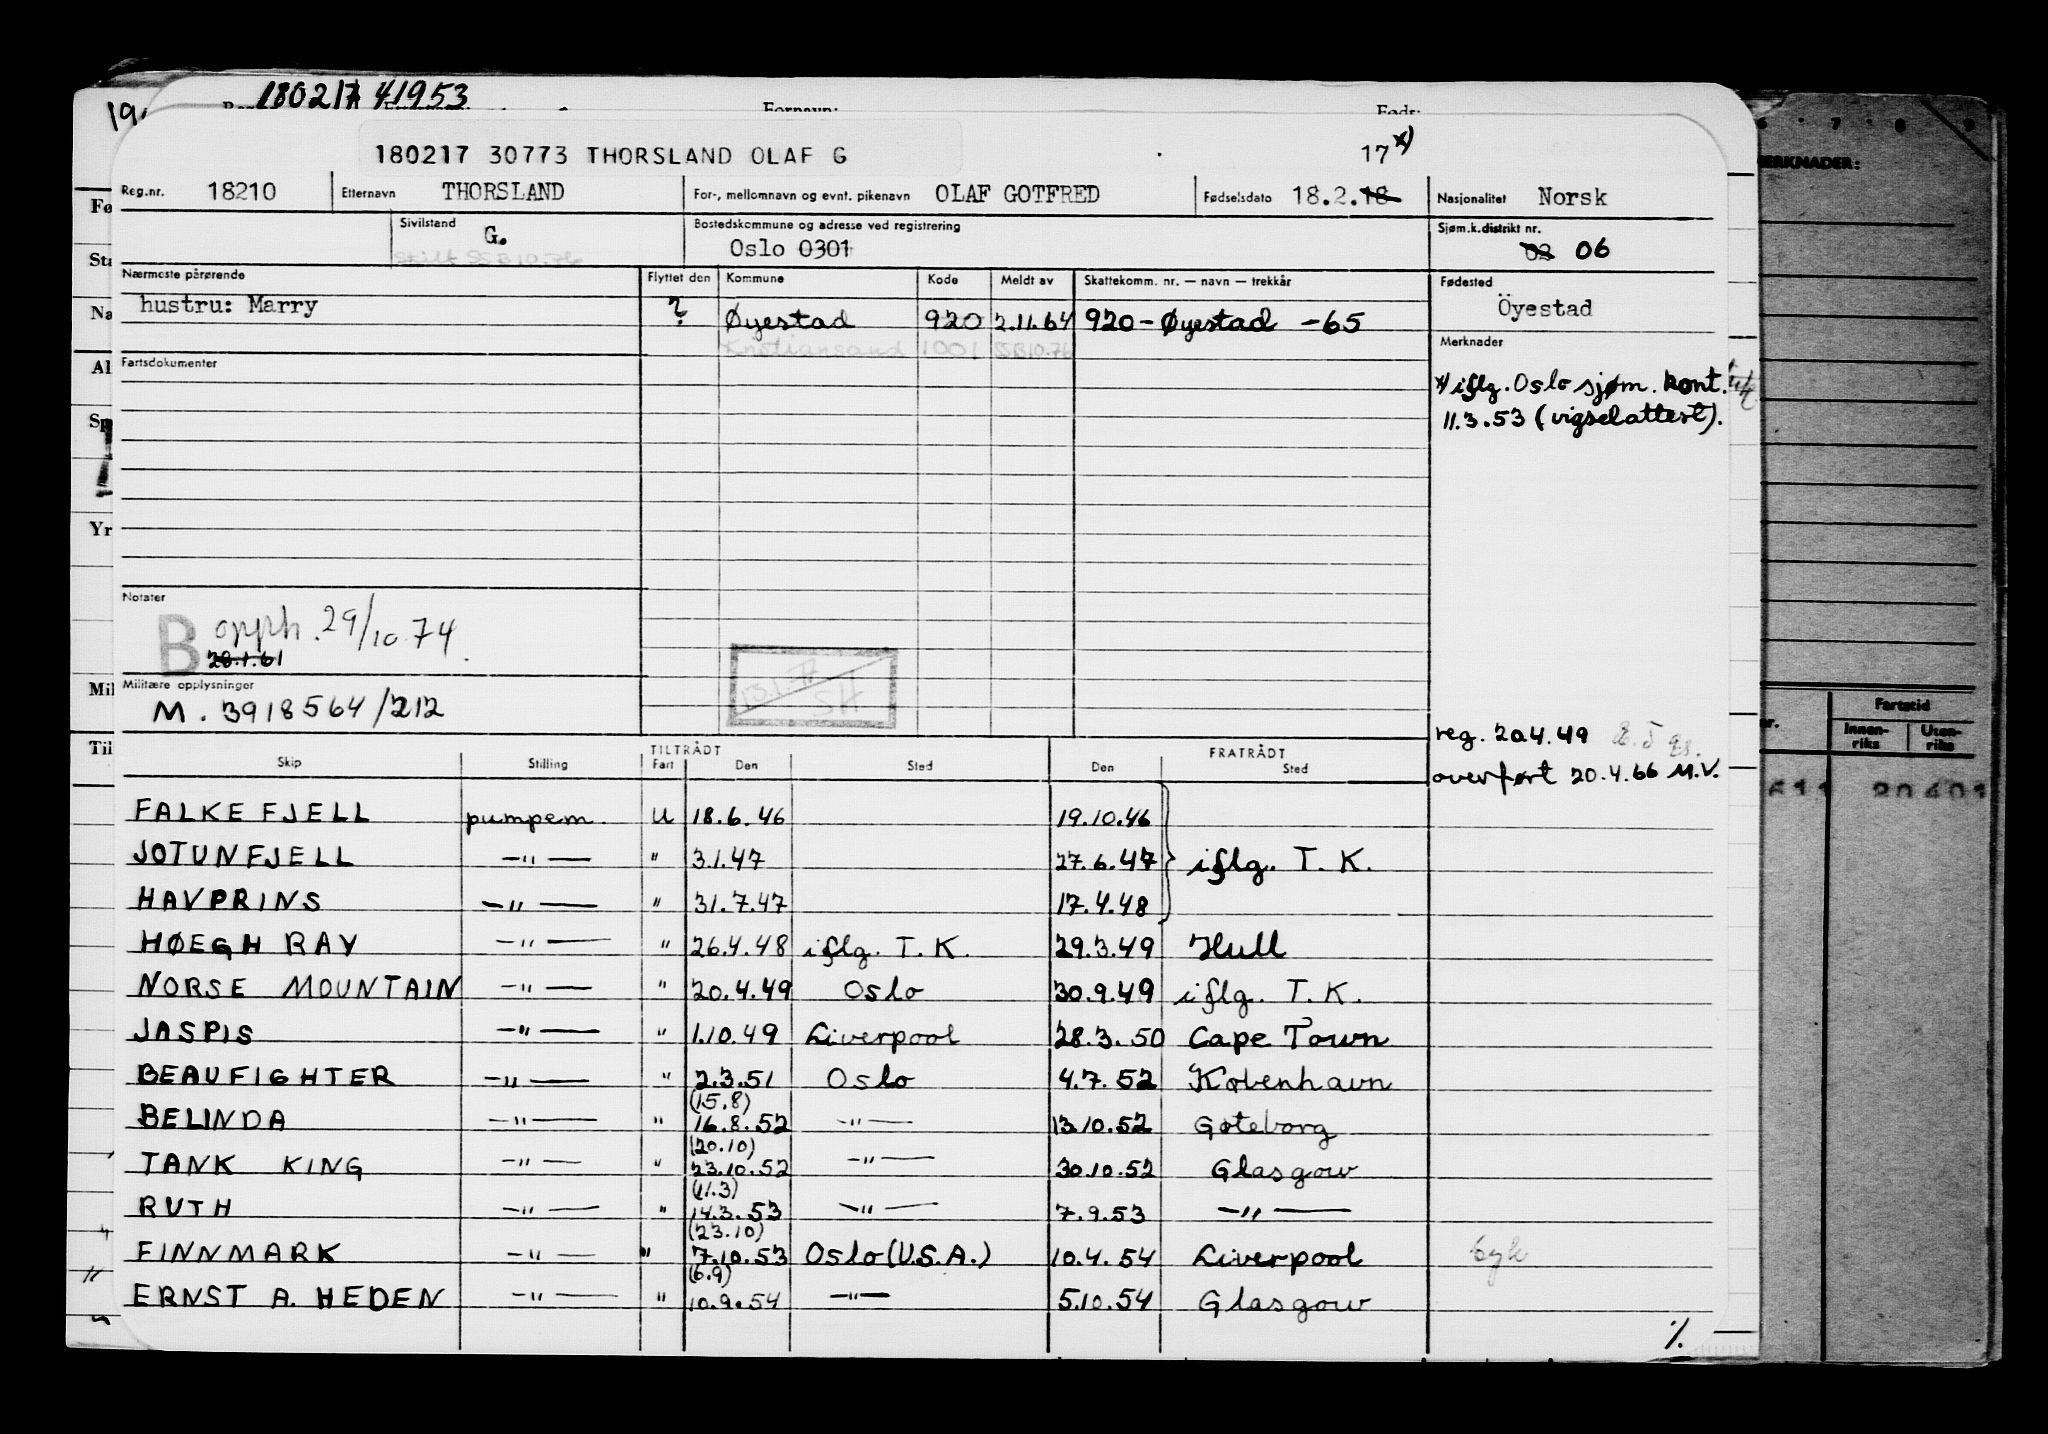 180217 41953
Fornavn: Født:
180217 30773 THORSLAND OLAF G 17 x)
Reg.nr. 18210 Etternavn THORSLAND For-, mellomnavn og evnt. pikenavn OLAF GOTFRED Fødselsdato 18.2.18 Nasjonalitet Norsk
Sivilstand G. Bostedskommune og adresse ved registrering Sjøm.k.distrikt nr.
skilt SSB 10.76 Oslo 0301 02 06
Nærmeste pårørende Flyttet den Kommune Kode Meldt av Skattekomm. nr. — navn — trekkår Fødested
hustru: Marry ? Øyestad 920 2.11.64 920 - Øyestad -65 Öyestad
Kristiansand 1001 SSB 10.76 Merknader
Fartsdokumenter
x) iflg. Oslo sjøm. kont.
11.3.53 (vigselattest).
Notater
B opph. 29/10 74
28.1.61
13.1.77
SH
Militære opplysninger
M. 3918564/212
reg. 20.4.49
overført 20.4.66 M.V.
TILTRÅDT FRATRÅDT
Skip Stilling Fart Den Sted Den Sted
FALKEFJELL pumpem. U 18.6.46 19.10.46
JOTUNFJELL —"— " 3.1.47 27.6.47 } iflg. T. K.
HAVPRINS —"— " 31.7.47 17.4.48
HØEGH RAY —"— " 26.4.48 iflg. T. K. 29.3.49 Hull
NORSE MOUNTAIN —"— " 20.4.49 Oslo 30.9.49 iflg. T. K.
JASPIS —"— " 1.10.49 Liverpool 28.3.50 Cape Town
BEAUFIGHTER —"— " 2.3.51 Oslo 4.7.52 København
(15.8)
BELINDA —"— " 16.8.52 —"— 13.10.52 Gøteborg
(20.10)
TANK KING —"— " 23.10.52 —"— 30.10.52 Glasgow
(11.3)
RUTH —"— " 14.3.53 —"— 7.9.53 —"—
(23.10)
FINNMARK —"— " 7.10.53 Oslo (U.S.A.) 10.4.54 Liverpool syk
(6.9)
ERNST A. HEDEN —"— " 10.9.54 —"— 5.10.54 Glasgow
%
6 . 7 . 8 . 9
MERKNADER:
Fartstid
Innen-
riks
Uten-
riks